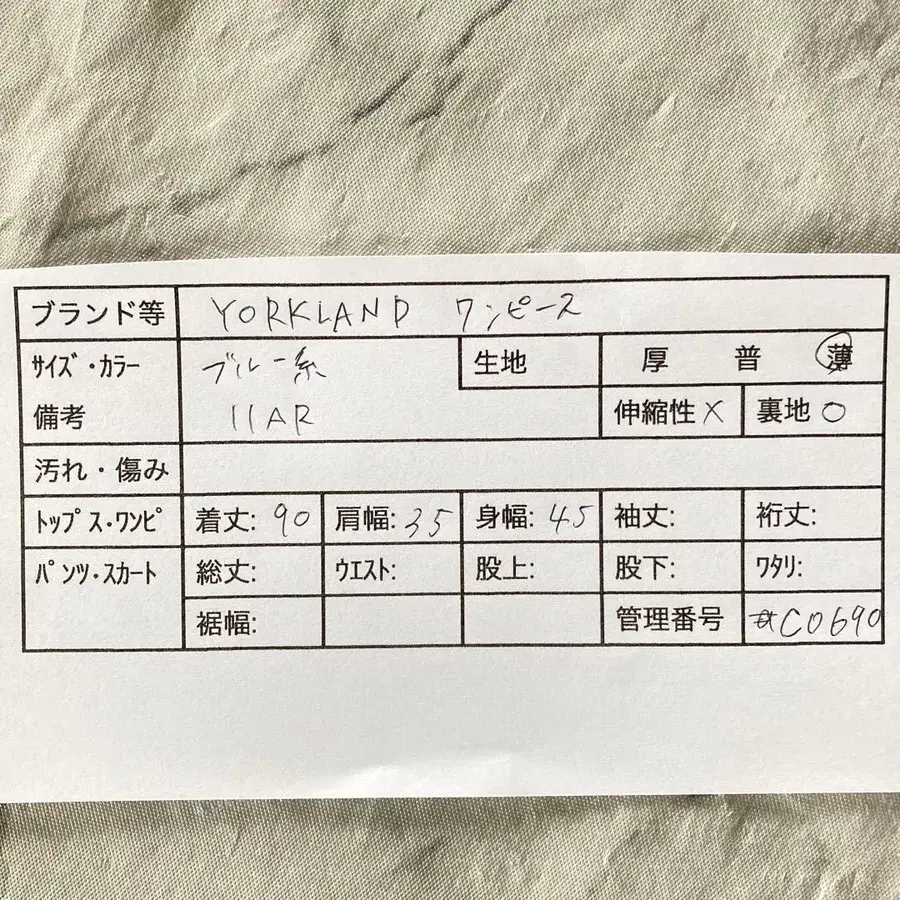 ブランド等 YORKLAND ワンピース
サイズ・カラー ブルー系 生地 厚 普 薄
備考 11AR 伸縮性 × 裏地 ○
汚れ・傷み
トップス・ワンピ 着丈: 90 肩幅: 35 身幅: 45 袖丈: 裄丈:
パンツ・スカート 総丈: ウエスト: 股上: 股下: ワタリ:
裾幅: 管理番号 #C0690